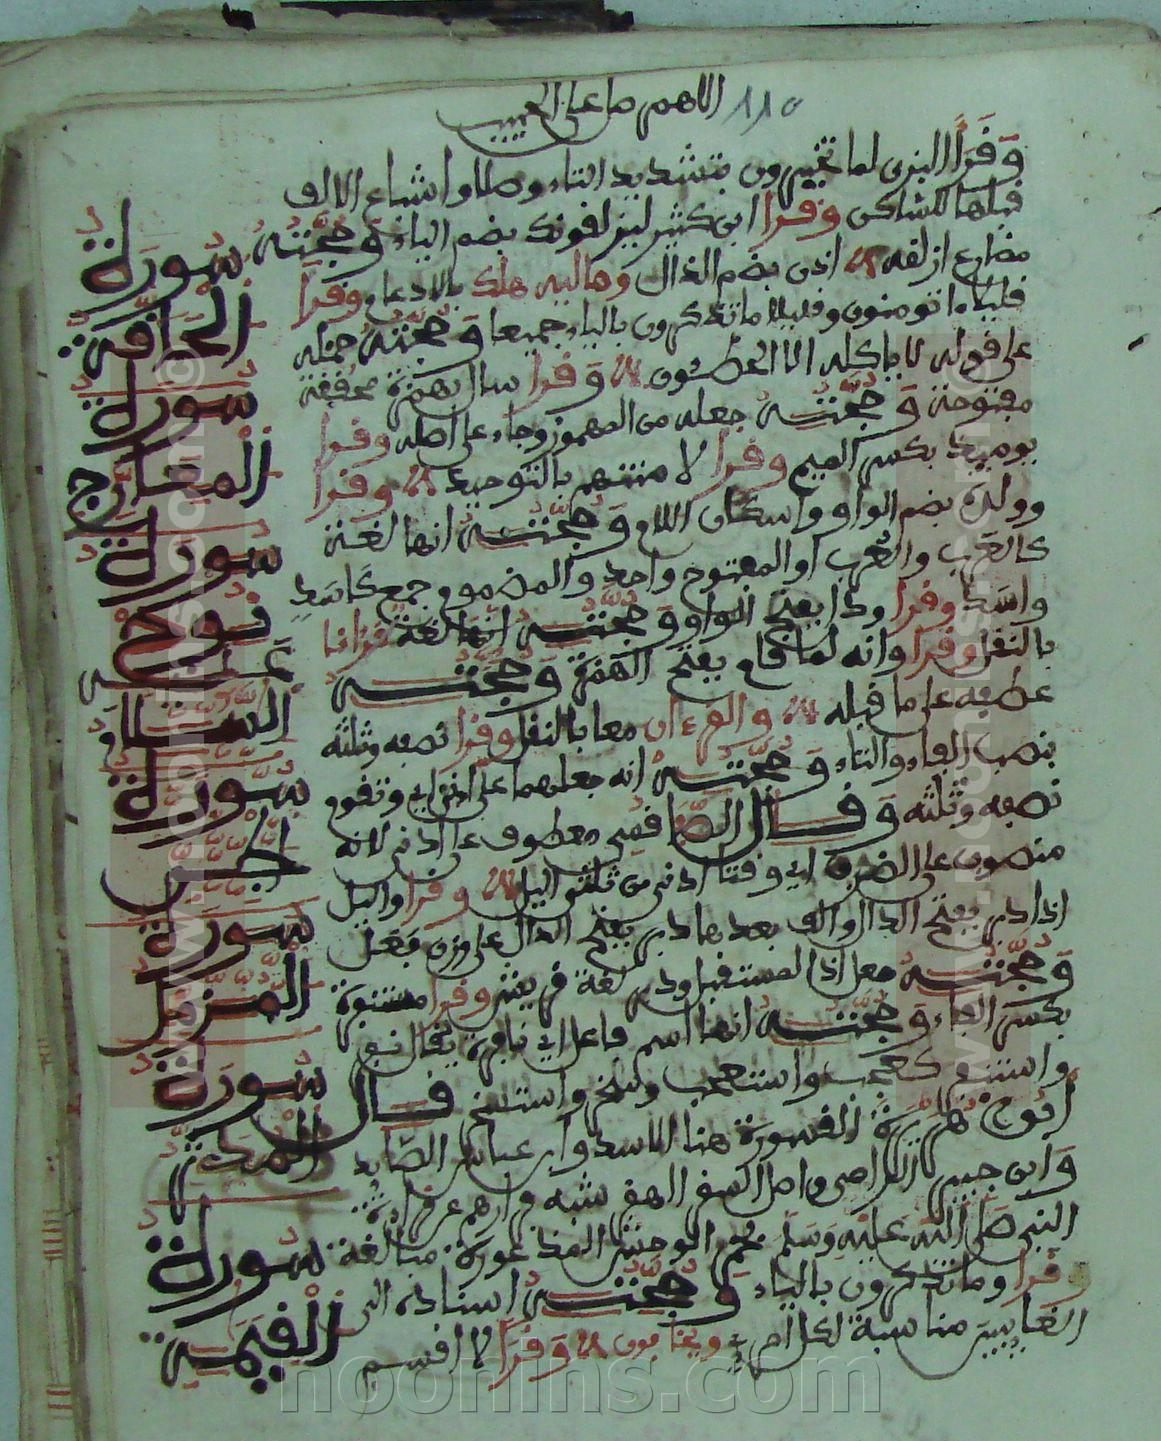 ١١٥ اللاهم صل على الحبيب
وقرا البزى لما تخيرون بتشديد التاء وصلا واشباع الالف
قبلها للساكن وقرا ابن كثير ليزلقونك بضم الياء وحجته
مضارع ازلقه اذن بضم الذال وماليه هلك بالادغام وقرا
قليلا ما تومنون وقليلا ما تذكرون بالياء جميعا وحجته حمله
على قوله لا ياكله الا الخطئون وقرا سال بهمزة محققة
مفتوحة وحجته جعله من المهموز وجاء على اصله وقرا
يوميذ بكسر الميم وقرا لامنتهم بالتوحيد وقرا
وولده بضم الواو واسكان اللام وحجته انها لغة
كالعرب والعرب او المفتوح واحد والمضموم جمع كاسد
واسد وقرا ودا بفتح الواو وحجته انها لغة قرانا
بالنقل وقرا وانه لما قام بفتح الهمزة وحجته
عطفه على ما قبله والقرءان معا بالنقل وقرا نصفه وثلثه
بنصب الفاء والثاء وحجته انه جعلهما على ادنى اي وتقوم
نصفه وثلثه وقال الصفا معطوف على ادنى لانه
منصوب على الضرف اي وقتا ادنى من ثلثي اليل وقرا واليل
اذا دبر بفتح الدال والف بعدها دبر بفتح الدال على وزن فعل
وحجته جعل اذا لمستقبل ودبر لغة قريش وقرا مستنفرة
بكسر الفاء وحجته انها اسم فاعل اي نافرة يقال نفر
واستنفر كعجب واستعجب وسخر واستسخر قال
ابو هريرة القسورة هنا الاسد وابن عباس الصايد
وابن جبير القراصى
النبي صلى الله عليه وسلم بحمر الوحش المذعورة مبالغة
قرا وما تذكرون بالياء وحجته اسناده الى
الغايبين مناسبة لكل امرئ ويخافون وقرا لا اقسم
سورة
الحاقة
سورة
المعارج
سورة
نوح
عليه
السلام
سورة
الجن
سورة
المزمل
سورة
المدثر
سورة
القيمة
www.noonins.com©
www.noonins.com©
noonins.com